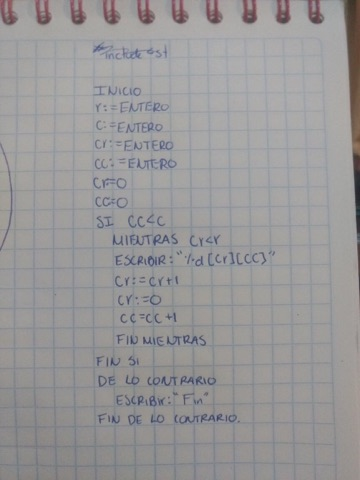 #include <st
INICIO
r:=ENTERO
C:=ENTERO
Cr:=ENTERO
CC:=ENTERO
Cr=0
CC=0
SI CC<C
MIENTRAS Cr<r
ESCRIBIR:"%d[Cr][CC]"
Cr:=Cr+1
Cr:=0
CC=CC+1
FIN MIENTRAS
FIN SI
DE LO CONTRARIO
ESCRIBIR:"Fin"
FIN DE LO CONTRARIO.